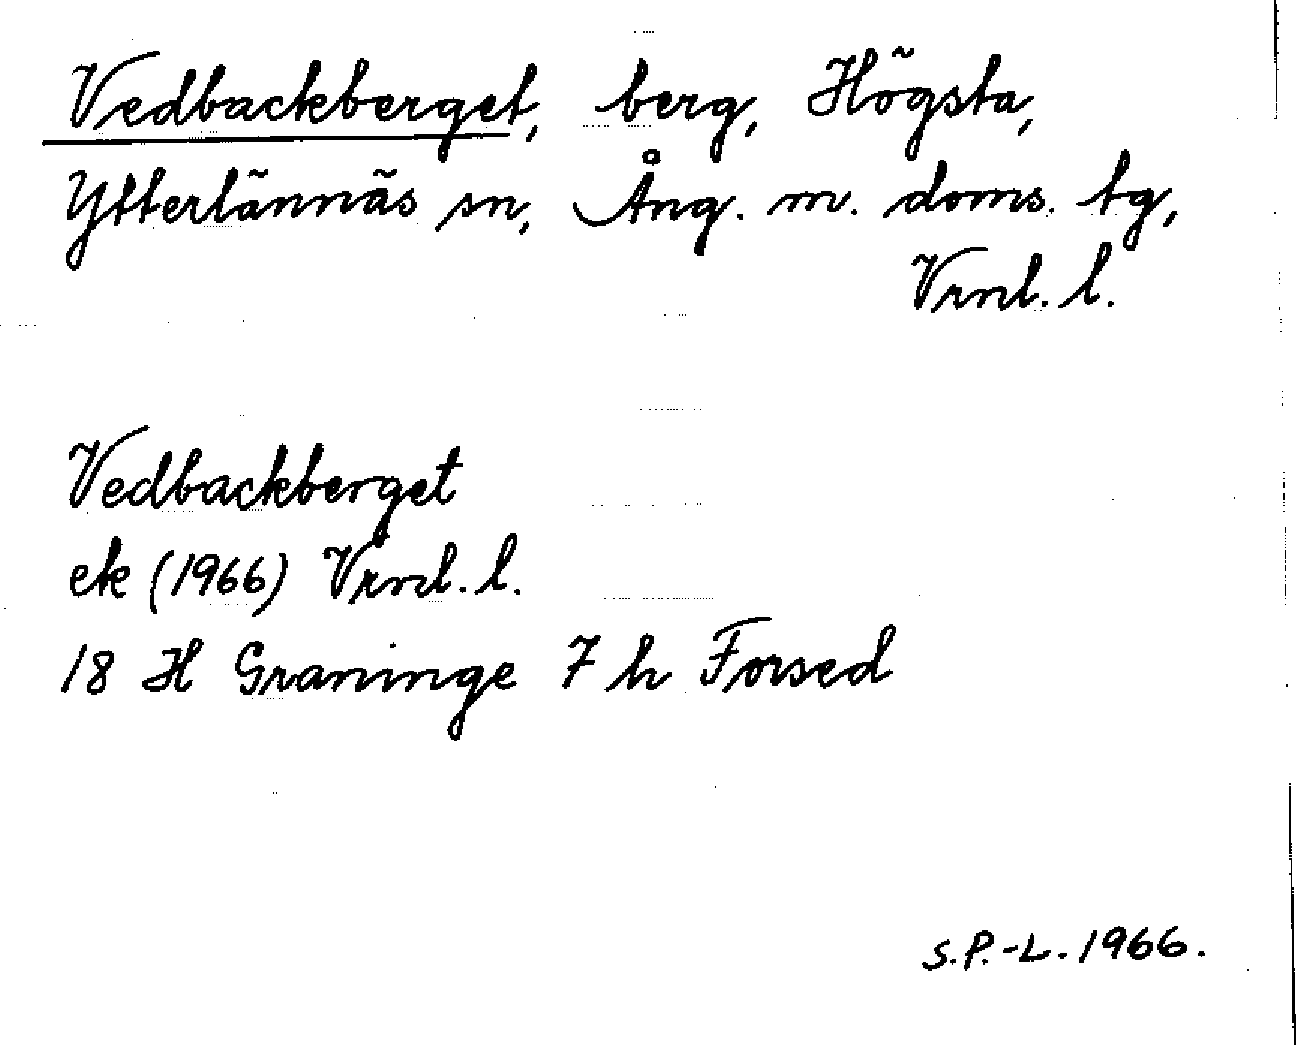 Vedbackberget, berg, Högsta,
Ytterlännäs sn, Ång. m. doms. tg,
Vrnl. l.
Vedbackberget
ek (1966) Vrnl. l.
18 H Graninge 7 h Forsed
S.P.-L. 1966.